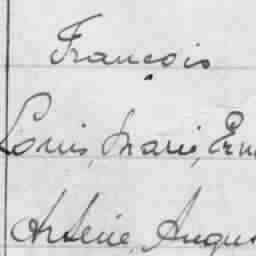 François
Louis, Marie, Ern
Arsène, Augus